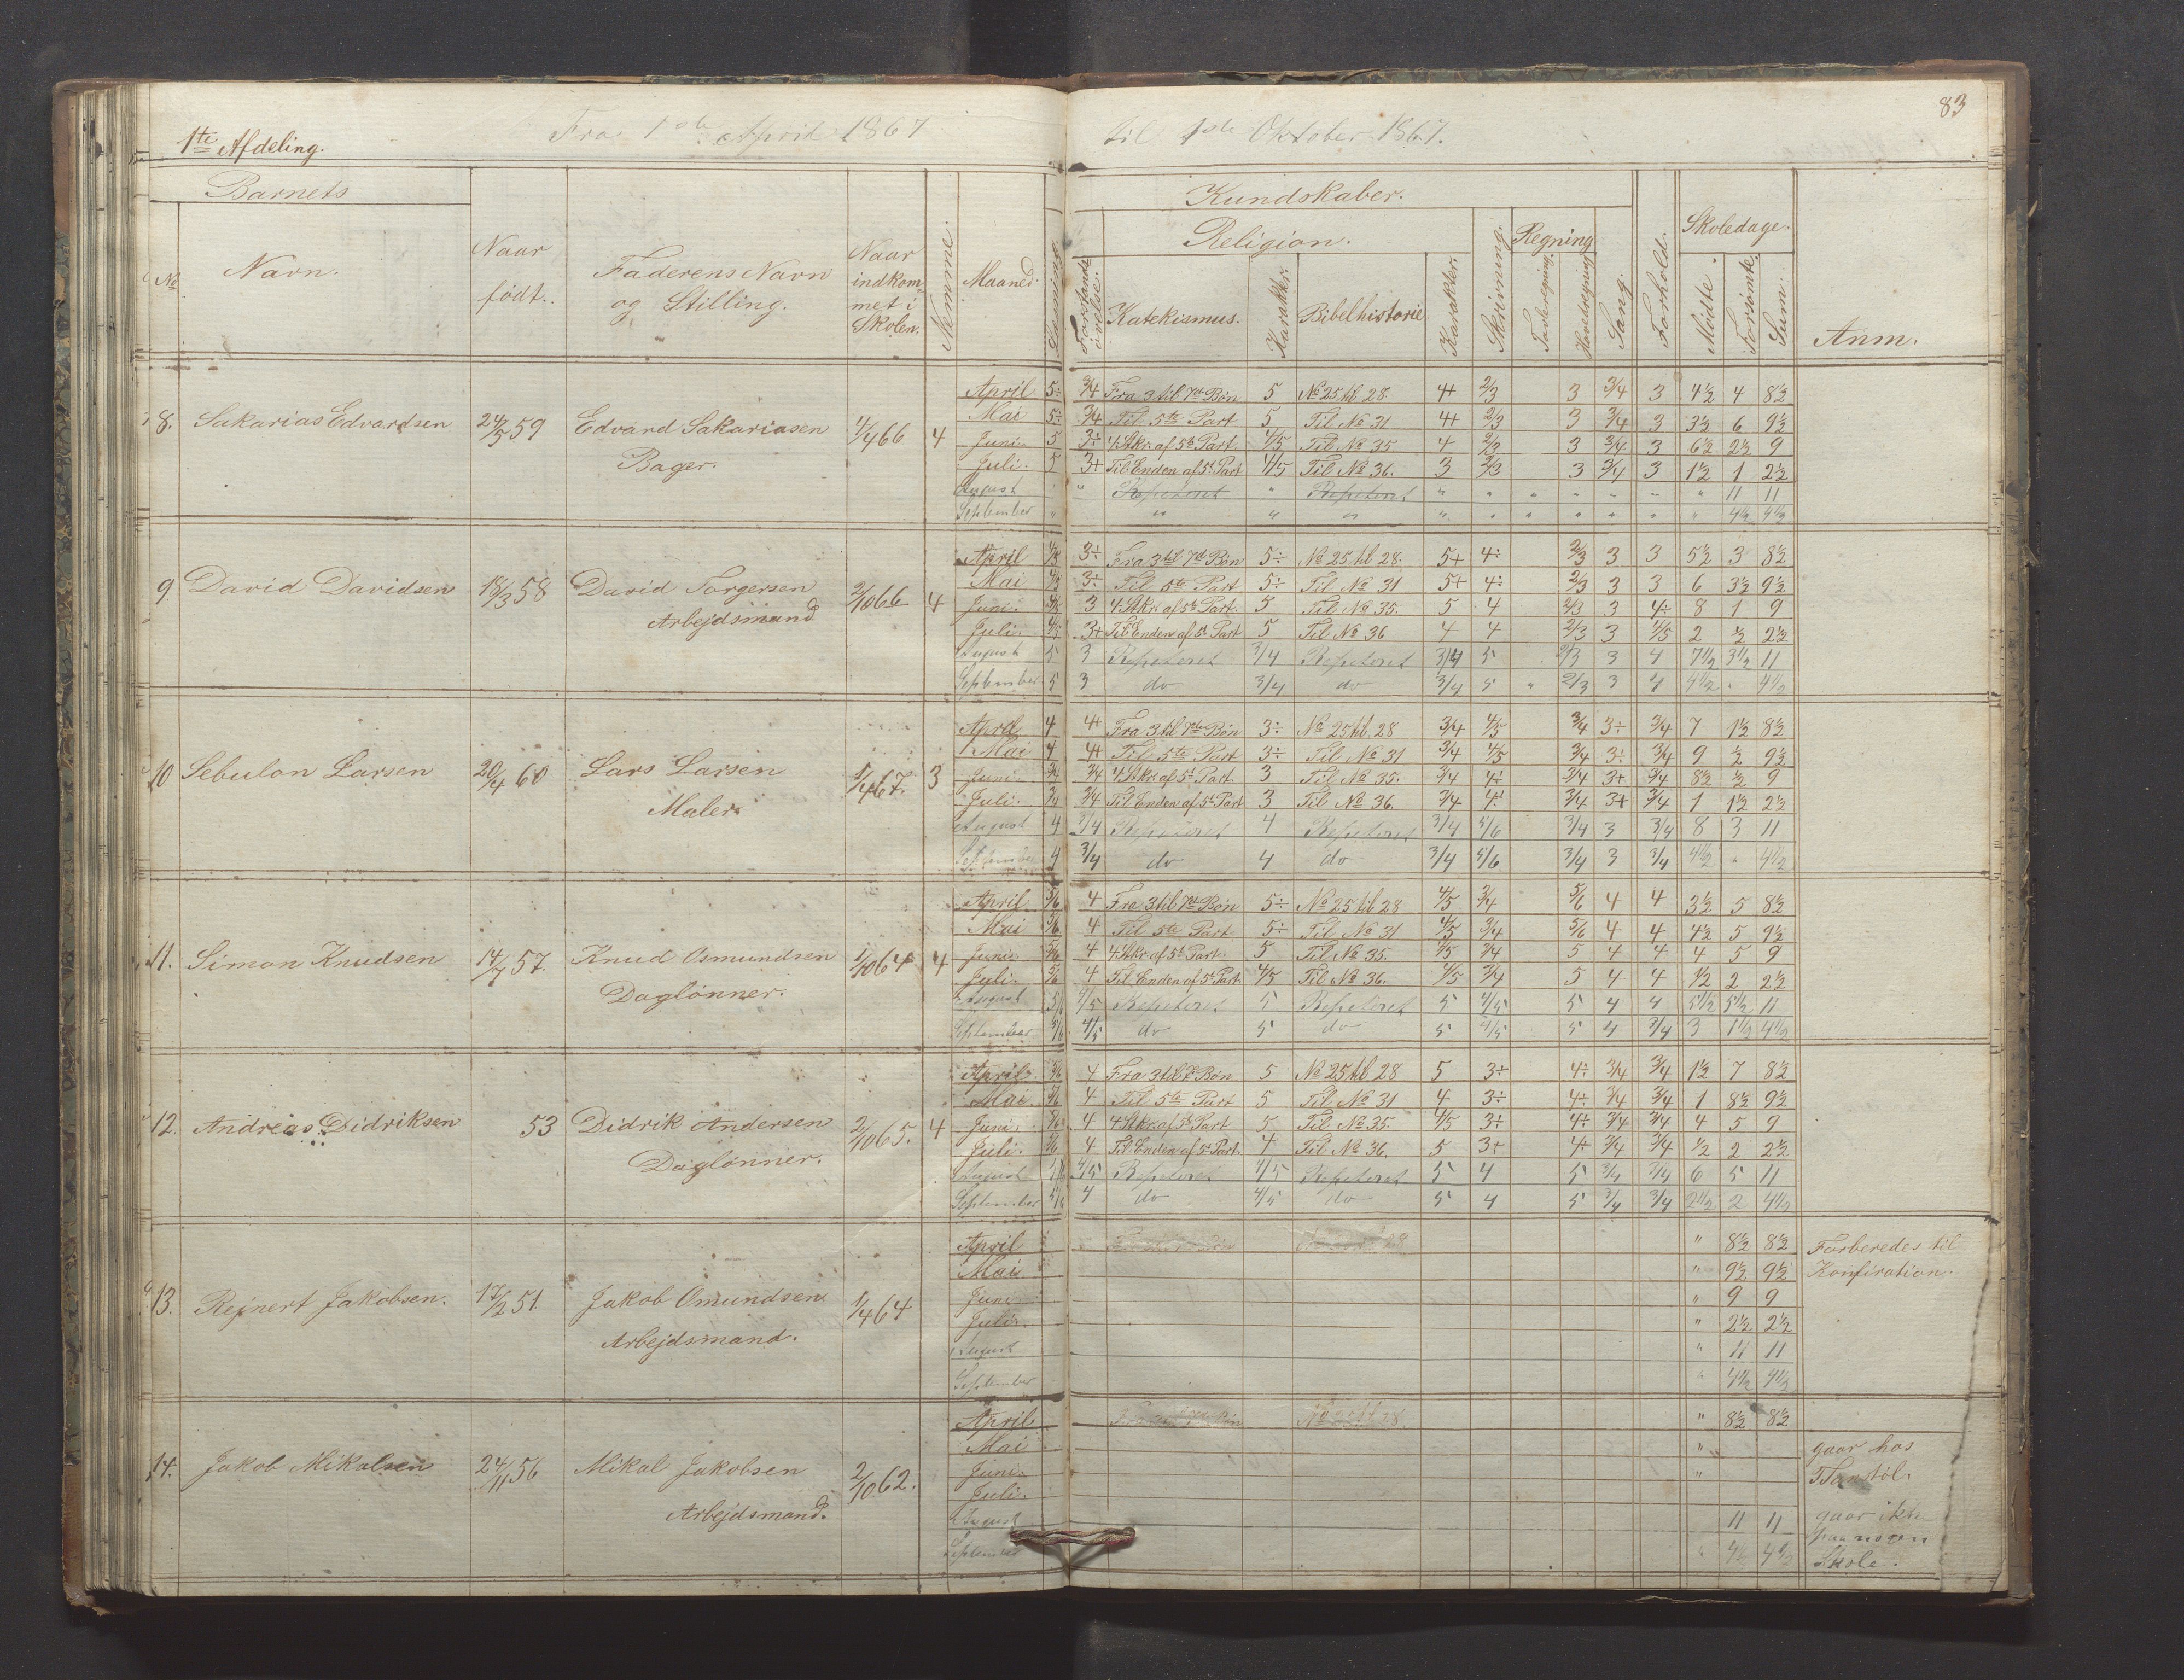 83
1te Afdeling. Fra 1ste April 1867 til 1ste Oktober 1867.
Barnets Kundskaber.
No Navn. Naar født. Faderens Navn og Stilling. Naar indkommet i Skolen. Nemme. Maaned. Læsning. Forstandsøvelse. Religion. Katekismus. Karakter. Bibelhistorie Karakter. Skrivning. Regning Tavleregning. Hovedregning Sang. Forhold. Skoledage. Mødte. Forsømte. Sum. Anm.
8. Sakarias Edvardsen 24/5 59 Edvard Sakariasen Bager. 4/4 66 4
April 5÷ 3/4 Fra 3 til 7de Bøn 5 No 25 til 28. 4+ 2/3 3 3/4 3 4½ 4 8½
Mai 5÷ 3/4 Til 5te Part 5 Til No 31 4+ 2/3 3 3/4 3 3½ 6 9½
Juni 5 3÷ 4 Stkr. af 5te Part. 4/5 Til No 35 4 2/3 3 3/4 3 6½ 2½ 9
Juli. 5 3+ Til Enden af 5te Part 4/5 Til No 36. 3 2/3 3 3/4 3 1½ 1 2½
August " Repeteret " Repeteret " " " " " " " 11 11
September " " " " " " " " " " " 4½ 4½
9. David Davidsen 18/3 58 David Torgersen Arbejdsmand 2/10 66 4
April 4/5 3÷ Fra 3 til 7de Bøn 5÷ No 25 til 28. 5+ 4÷ 2/3 3 3 5½ 3 8½
Mai 4/5 3÷ Til 5te Part 5÷ Til No 31 5+ 4÷ 2/3 3 3 6 3½ 9½
Juni. 4/5 3 4 Stkr. af 5te Part. 5 Til No 35. 5 4 2/3 3 4÷ 8 1 9
Juli. 4/5 3+ Til Enden af 5te Part 5 Til No 36 4 4 2/3 3 4/5 2 ½ 2½
August 5 3 Repeteret 3/4 Repeteret 3/4 5 2/3 3 4 7½ 3½ 11
September 5 3 do 3/4 do 3/4 5 " 2/3 3 4 4½ " 4½
10 Sebulon Larsen 20/4 60 Lars Larsen Maler. 1/4 67. 3
April 4 4+ Fra 3 til 7de Bøn 3÷ No 25 til 28 3/4 4/5 3/4 3÷ 3/4 7 1½ 8½
Mai 4 4+ Til 5te Part 3÷ Til No 31 3/4 4/5 3/4 3÷ 3/4 9 ½ 9½
Juni 3/4 3/4 4 Stkr. af 5te Part. 3 Til No 35. 3/4 4÷ 3/4 3+ 3/4 8½ ½ 9
Juli. 3/4 3/4 Til Enden af 5te Part 3 Til No 36. 3/4 4÷ 3/4 3+ 3/4 1 1½ 2½
August 4 3/4 Repeteret 4 Repeteret 3/4 5/6 3/4 3 3/4 8 3 11
September 4 3/4 do 4 do 3/4 5/6 3/4 3 3/4 4½ " 4½
11. Simon Knudsen 14/7 57. Knud Osmundsen Daglønner. 1/10 64 4
April 5/6 4 Fra 3 til 7de Bøn 5÷ No 25 til 28 4/5 3/4 5/6 4 4 3½ 5 8½
Mai 5/6 4 Til 5te Part 5÷ Til No 31 4/5 3/4 5/6 4 4 4½ 5 9½
Juni 5/6 4 4 Stkr. af 5te Part. 5 Til No 35. 4/5 3/4 5 4 4 4 5 9
Juli. 5/6 4 Til Enden af 5te Part. 4/5 Til No 36. 4/5 3/4 5 4 4 ½ 2 2½
August 5/6 4/5 Repeteret 5 Repeteret 5 4/5 5 4 4 5½ 5½ 11
September 5/6 4/5 do 5 do 5 4/5 5 4 3/4 3 1½ 4½
12. Andreas Didriksen 53 Didrik Andersen Daglønner. 2/10 65. 4
April. 5/6 4 Fra 3 til 7de Bøn 5 No 25 til 28 5 3÷ 4÷ 3/4 3/4 1½ 7 8½
Mai. 5/6 4 Til 5te Part 5 Til No 31 4 3÷ 4÷ 3/4 3/4 1 8½ 9½
Juni. 5/6 4 4 Stkr. af 5te Part 5 Til No 35. 4/5 3+ 4÷ 3/4 3/4 4 5 9
Juli. 5/6 4 Til Enden af 5te Part. 4 Til No 36. 5 3+ 4÷ 3/4 3/4 ½ 2 2½
August 5/6 4/5 Repeteret 4/5 Repeteret 5 4 5 3/4 3/4 6 5 11
September 5/6 4 do 4/5 do 5 4 5 3/4 3/4 2½ 2 4½
13. Rejnert Jakobsen. 17/2 51. Jakob Omundsen Arbejdsmand. 1/4 64
April " 8½ 8½ Forberedes til
Mai " 9½ 9½ Konfiration.
Juni " 9 9
Juli. " 2½ 2½
August " 11 11
September " 4½ 4½
14. Jakob Mikalsen 24/11 56 Mikal Jakobsen Arbejdsmand. 2/10 62.
April " 8½ 8½
Mai " gaar hos
Juni. "
Juli.
August 11 11 gaar ikke
September " 4½ 4½ paa
Skole.